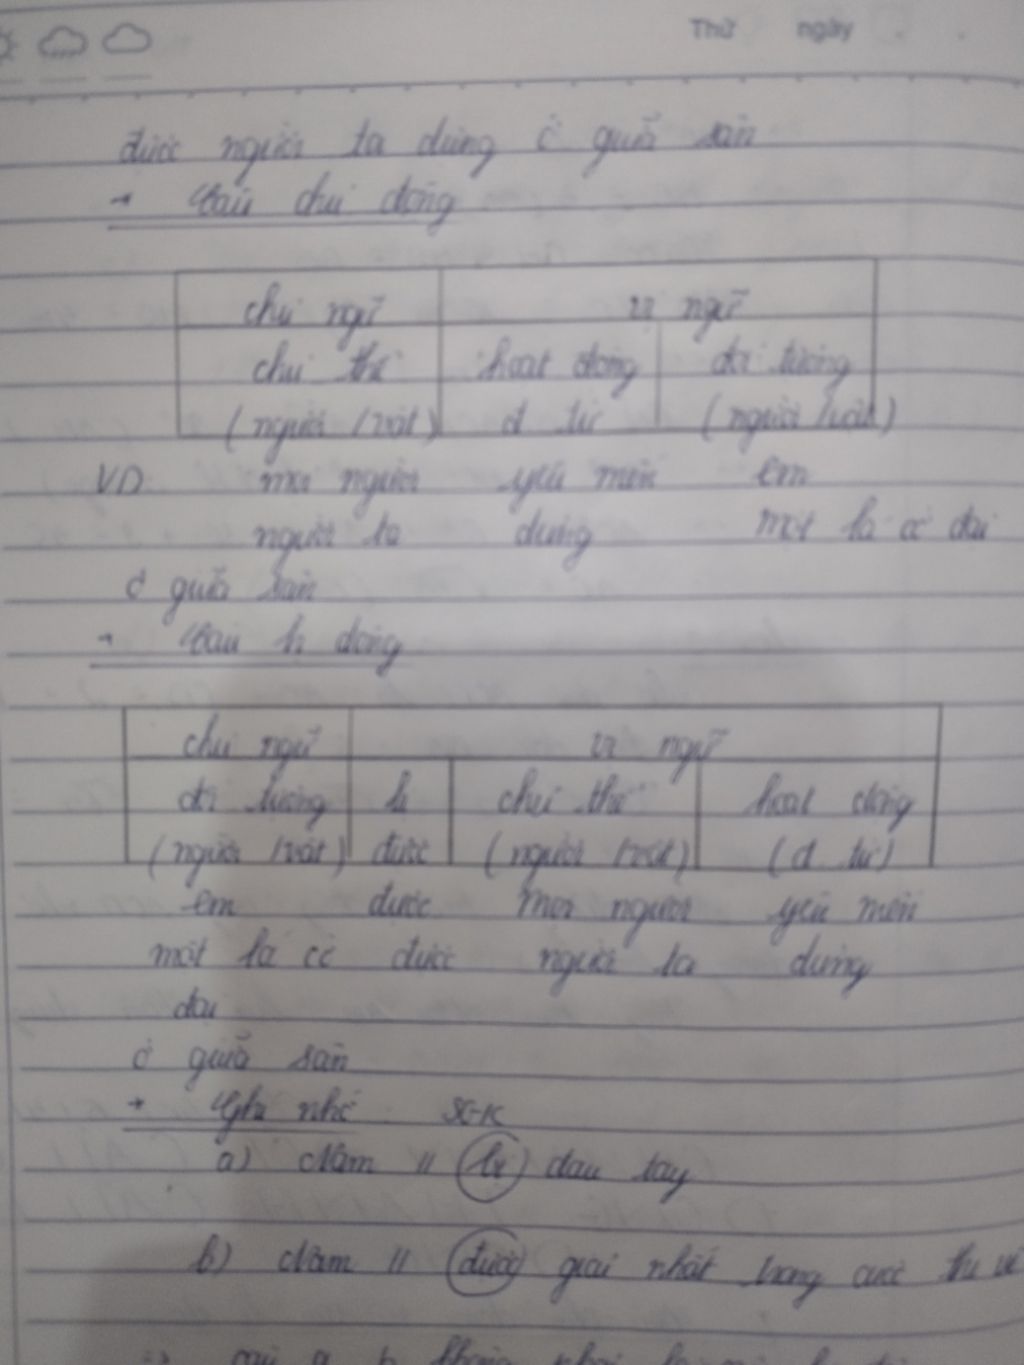 Thứ ngày
được người ta dựng ở giữa sân
→ Câu chủ động
chủ ngữ vị ngữ
chủ thể hoạt động đối tượng
(người / vật) đ từ (người / vật)
VD mọi người yêu mến em
người ta dựng một lá cờ đại
ở giữa sân
→ Câu bị động
chủ ngữ vị ngữ
đối tượng bị chủ thể hoạt động
(người / vật) được (người / vật) (đ từ)
em được mọi người yêu mến
một lá cờ được người ta dựng
đại
ở giữa sân
→ Ghi nhớ SGK
a) Nam // bị đau tay
b) Nam // được giải nhất trong cuộc thi